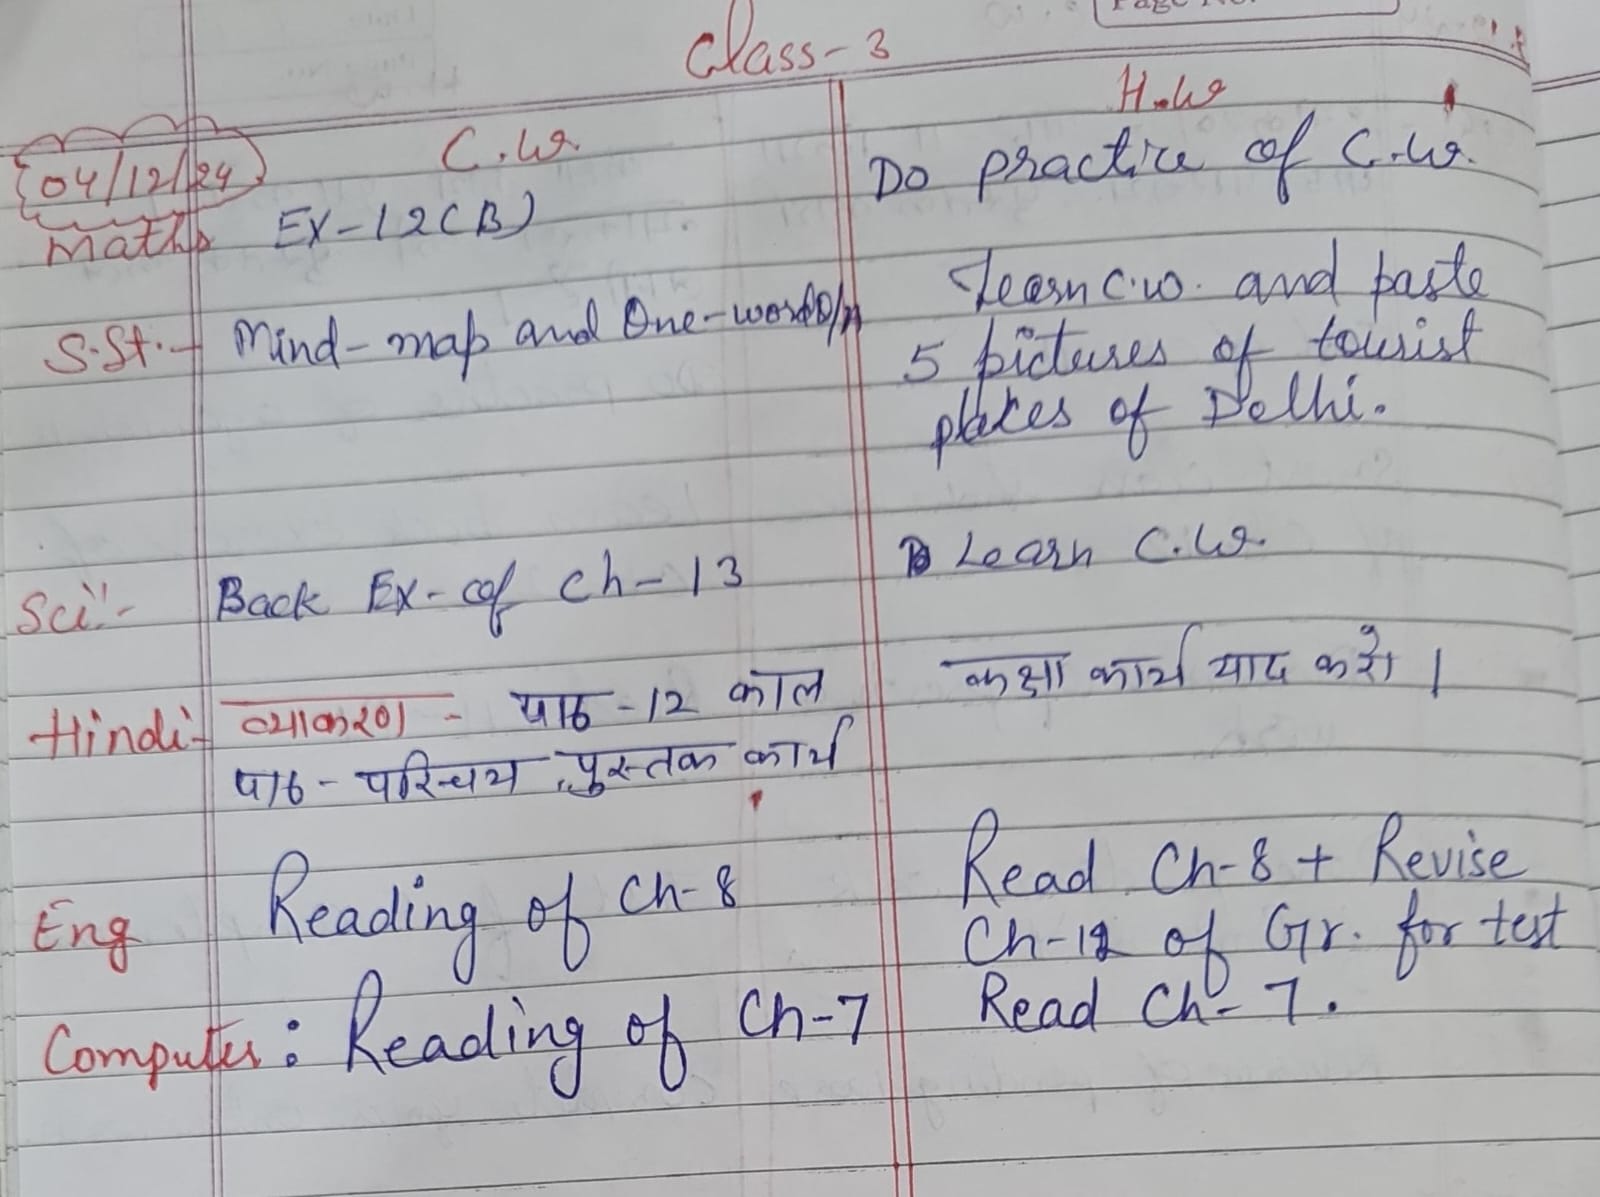 Page No.
Class-3
C.W. H.W
04/12/24
Maths Ex-12(B) Do practice of C.W.
S.St.- Mind-map and One-word Learn C.W. and paste
5 pictures of tourist
places of Delhi.
Sci:- Back Ex-of Ch-13 Learn C.W.
Hindi:- व्याकरण - पाठ-12 काल कक्षा कार्य याद करो ।
पाठ-परिचय, पुस्तक कार्य
Eng Reading of Ch-8 Read Ch-8 + Revise
Ch-12 of Gr. for test
Computer: Reading of Ch-7 Read Ch-7.